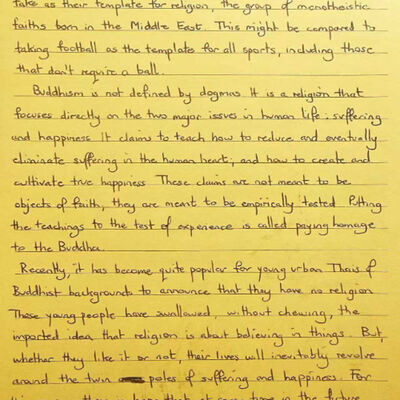 take as their template for religion, the group of monotheistic
faiths born in the Middle East. This might be compared to
taking football as the template for all sports, including those
that don't require a ball.
Buddhism is not defined by dogmas. It is a religion that
focuses directly on the two major issues in human life - suffering
and happiness. It claims to teach how to reduce and eventually
eliminate suffering in the human heart, and how to create and
cultivate true happiness. These claims are not meant to be
objects of faith, they are meant to be empirically tested. Putting
the teachings to the test of experience is called paying homage
to the Buddha.
Recently, it has become quite popular for young urban Thais of
Buddhist backgrounds to announce that they have no religion
These young people have swallowed, without chewing, the
imported idea that religion is about believing in things. But,
whether they like it or not, their lives will inevitably revolve
around the twin poles of suffering and happiness. For
there is hope that at some time in the future